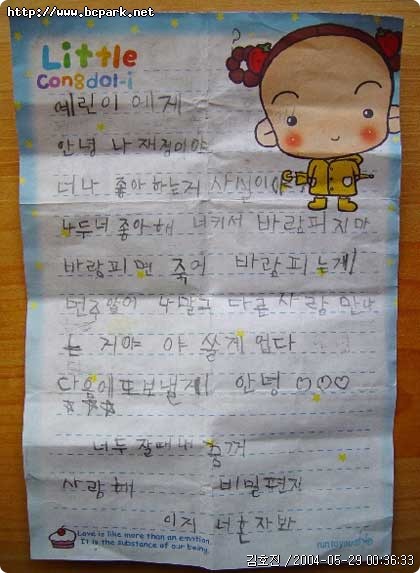 http://www.bcpark.net
Little
Congdol-i
예린이에게
안녕 나 재정이야
너 나 좋아하는거 사실이야?
나두 너 좋아해 너 커서 바람피지마
바람피면 죽어 바람피는게
먼주알어 나말고 다른 사람 만나
는 거야 야 쓸게 업다
다음에 또 보낼게 안녕 ♡♡♡
너두 잘때 내 꿈꿔
사랑해 비밀편지
이거 너 혼자봐
Love is like more than an emotion.
It is the substance of our being.
run to you
김효진 /2004-05-29 00:36:33